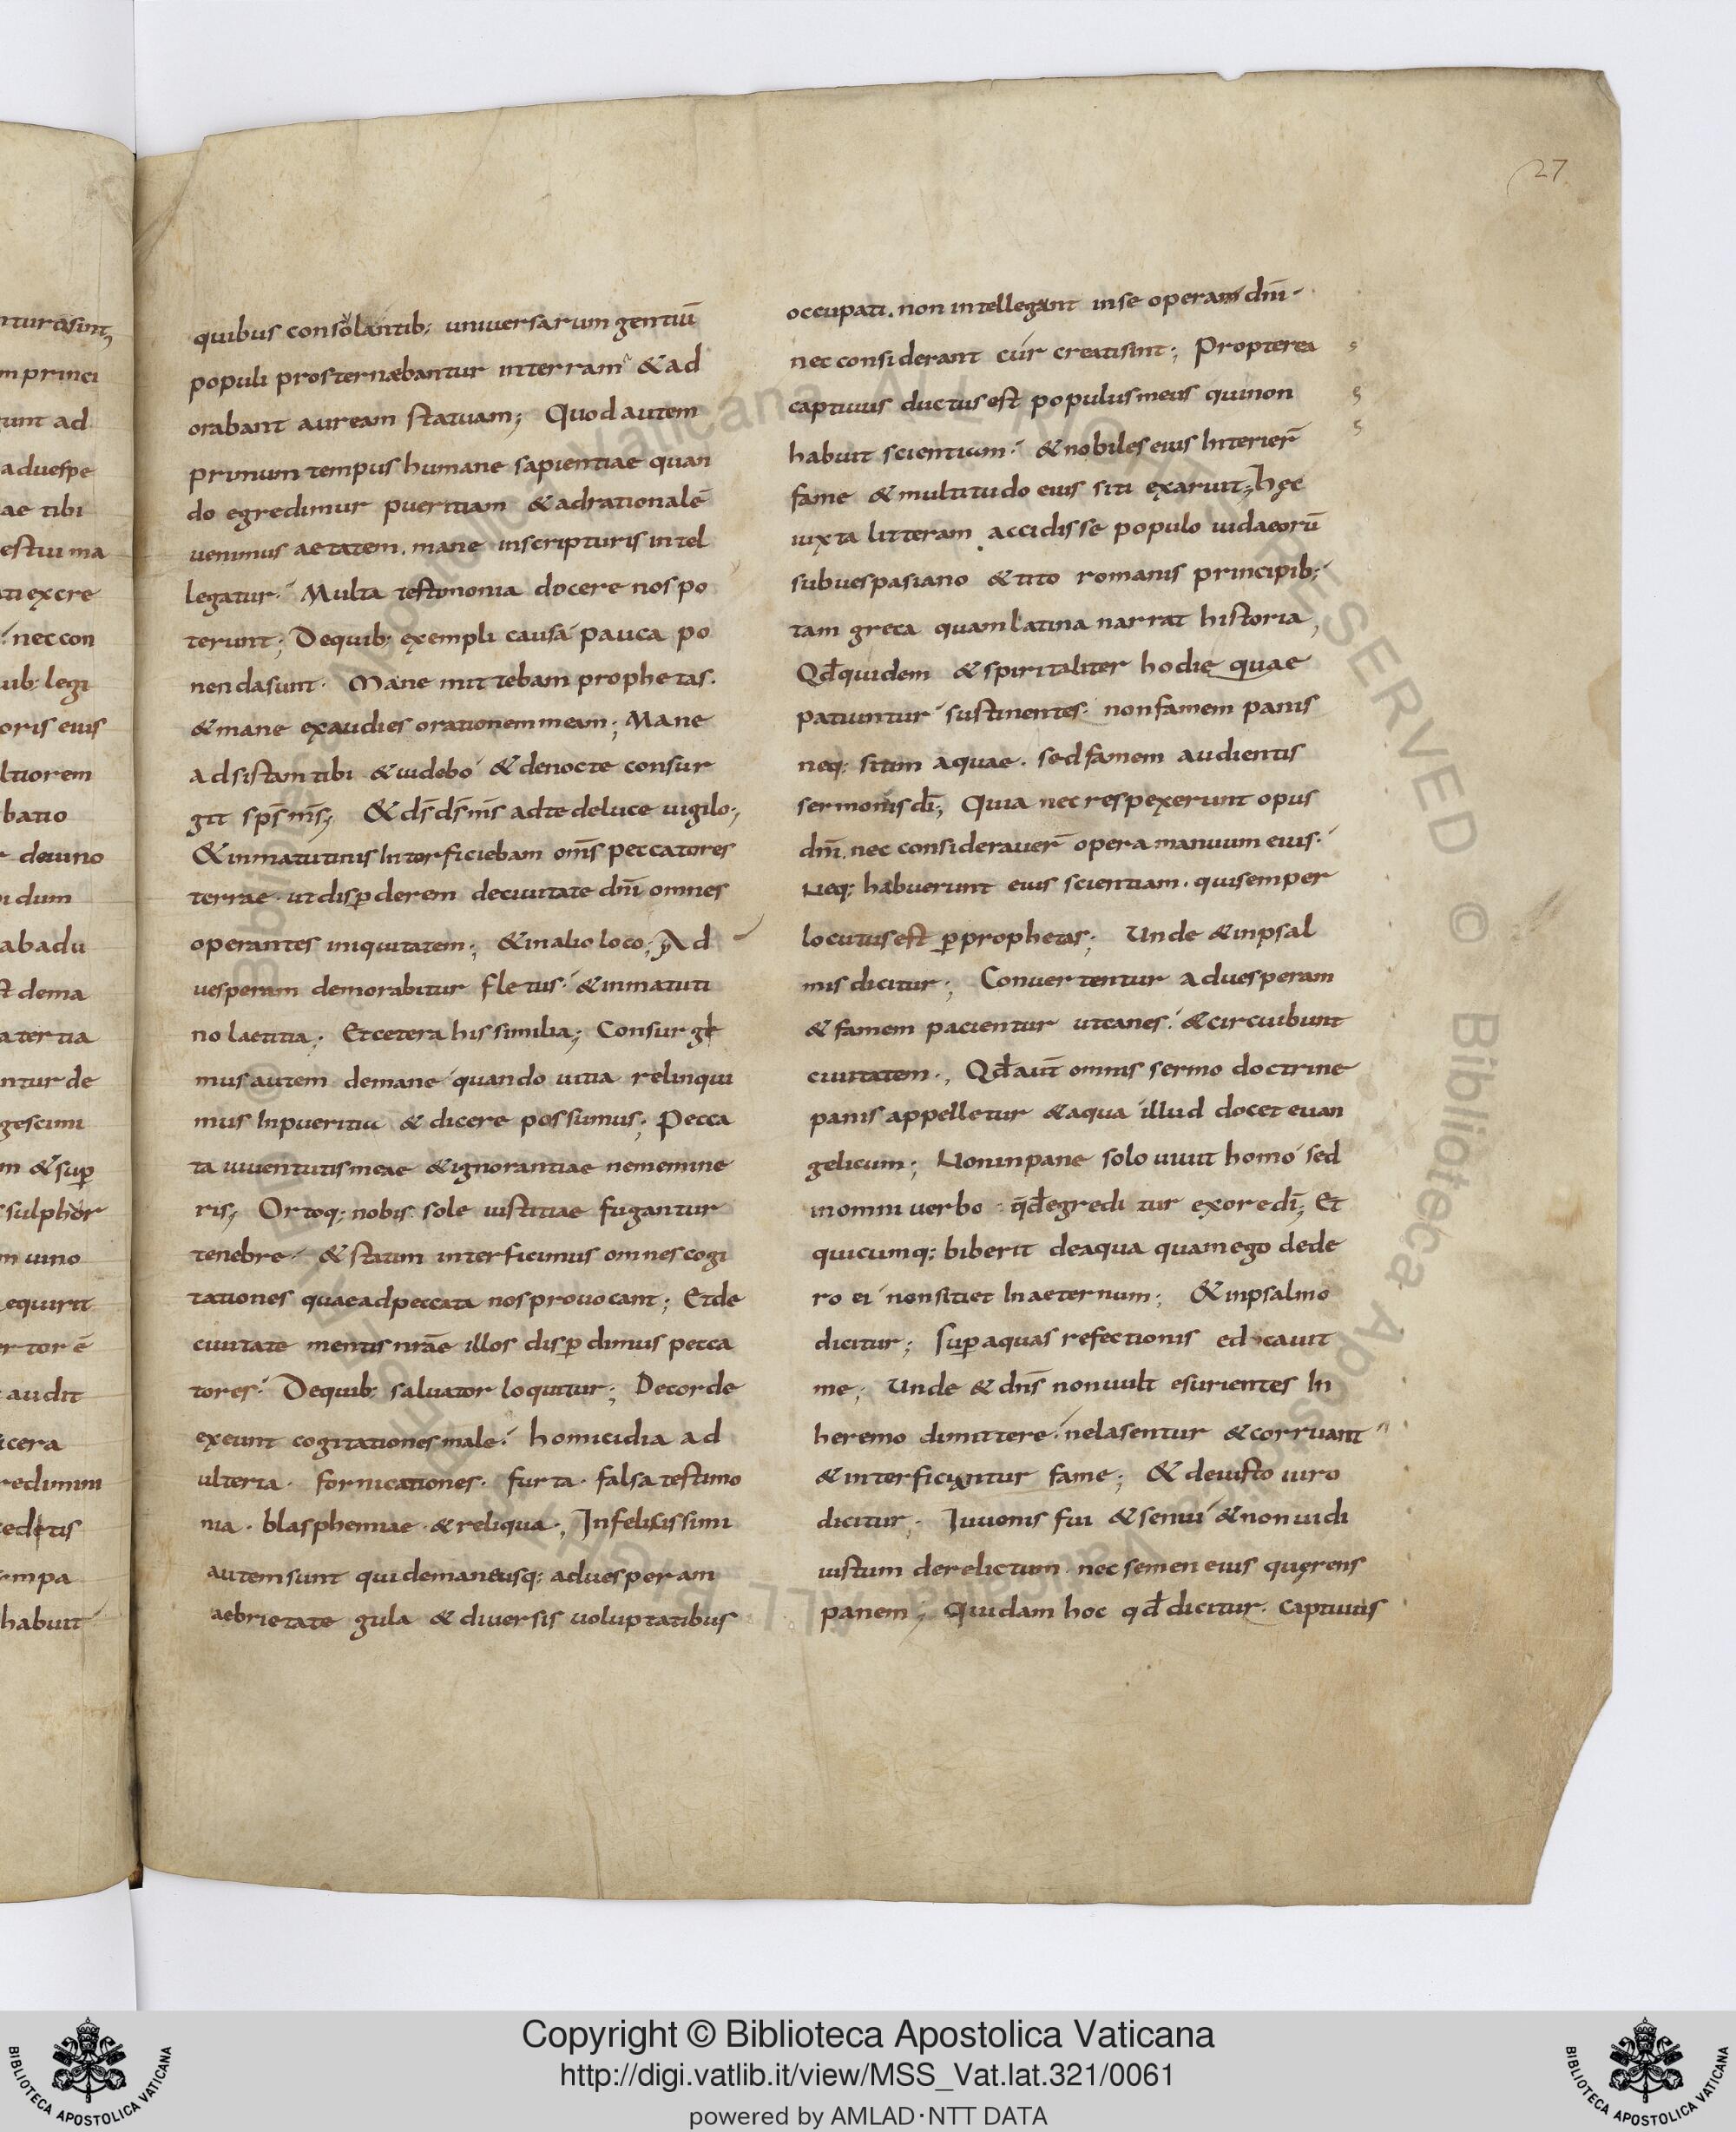 27
quibus consolantib; uniuersarum gentiū
populi prosternæbantur interram & ad
orabant auream statuam; Quod autem
primum tempus humane sapientiae quan
do egredimur pueritiam & adrationalē
uenimus aetatem. mane inscripturis intel
legatur. Multa testimonia docere nos po
terunt; Dequib; exempli causa pauca po
nenda sunt. Mane mittebam prophetas.
& mane exaudies orationem meam; Mane
adsistam tibi & uidebo & denocte consur
git sp̄s m̄s; & d̄s d̄s m̄s adte deluce uigilo;
& inmatutinis Interficiebam om̄s peccatores
terrae. ut disꝑderem deciuitate dn̄i omnes
operantes iniquitatem; & inalio loco; Ad
uesperam demorabitur fletus. & inmatuti
no laetitia; Et cetera his similia; Consurge
mus autem demane quando uitia relinqui
mus Inpueritia & dicere possumus; Pecca
ta iuuentutis meae & ignorantiae nememine
ris; Ortoq; nobis sole iustitiae fugantur
tenebre. & statim interficimus omnes cogi
tationes quae adpeccata nos prouocant; Et de
ciuitate mentis nr̄ae illos disꝑdimus pecca
tores. Dequib; saluator loquitur; Decorde
exeunt cogitationes male. homicidia ad
ulteria. fornicationes. furta. falsa testimo
nia. blasphemiae. & reliqua; Infelicissimi
autem sunt qui demane usq; aduesperam
aebrietate gula & diuersis uoluptatibus
occupati. non intellegunt inse operam dn̄i.
nec considerant cur creati sint; Propterea
captiuus ductus est populus meus qui non
habuit scientiam. & nobiles eius Interier̄
fame & multitudo eius siti exaruit; hęc
iuxta litteram accidisse populo iudaeorū
sub uespasiano & tito romanis principib;
tam greca quam latina narrat historia,
Qd̄ quidem & spiritaliter hodie quae
patiuntur sustinentes. non famem panis
neq; sitim aquae. sed famem audientis
sermonis dī; Quia nec respexerunt opus
dn̄i. nec considerauer̄ opera manuum eius.
Neq; habuerunt eius scientiam. qui semper
locutus est ꝑ prophetas; Unde & inpsal
mis dicitur; Conuertentur aduesperam
& famem pacientur ut canes. & circuibunt
ciuitatem; Qd̄ aut̄ omnis sermo doctrine
panis appelletur & aqua illud docet euan
gelicum; Non inpane solo uiuit homo sed
inomni uerbo qd̄ egreditur exore dī; Et
quicumq; biberit deaqua quam ego dede
ro ei non sitiet Inaeternum; & inpsalmo
dicitur; Suꝑ aquas refectionis educauit
me; Unde & dn̄s non uult esurientes In
heremo dimittere. ne lasentur & corruant
& interficiantur fame; & deiusto uiro
dicitur; Iuuenis fui & senui & non uidi
iustum derelictum nec semen eius quęrens
panem; Quidam hoc qd̄ dicitur. captiuus
Copyright © Biblioteca Apostolica Vaticana
http://digi.vatlib.it/view/MSS_Vat.lat.321/0061
powered by AMLAD·NTT DATA